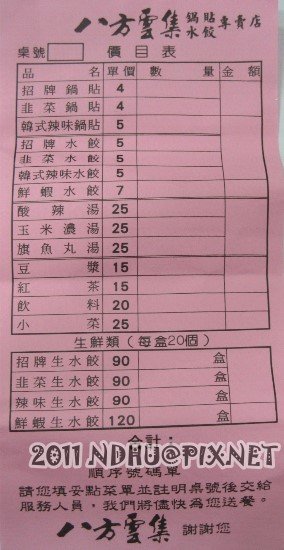 八方雲集 鍋貼水餃專賣店
桌號 價目表
品名 單價 數量 金額
招牌鍋貼 4
韭菜鍋貼 4
韓式辣味鍋貼 5
招牌水餃 5
韭菜水餃 5
韓式辣味水餃 5
鮮蝦水餃 7
酸辣湯 25
玉米濃湯 25
旗魚丸湯 25
豆漿 15
紅茶 15
飲料 20
小菜 25
生鮮類（每盒20個）
招牌生水餃 90 盒
韭菜生水餃 90 盒
辣味生水餃 90 盒
鮮蝦生水餃 120 盒
合計：
2011 NDHU@PIX.NET
順序號碼單
請您填妥點菜單並註明桌號後交給
服務人員，我們將儘快為您送餐。
八方雲集 謝謝您